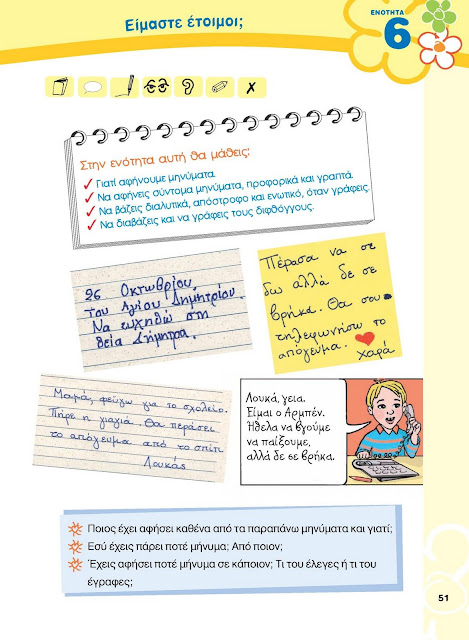 Είμαστε έτοιμοι;
ΕΝΟΤΗΤΑ
6
Στην ενότητα αυτή θα μάθεις:
Γιατί αφήνουμε μηνύματα.
Να αφήνεις σύντομα μηνύματα, προφορικά και γραπτά.
Να βάζεις διαλυτικά, απόστροφο και ενωτικό, όταν γράφεις.
Να διαβάζεις και να γράφεις τους διφθόγγους.
26 Οκτωβρίου
Του Αγίου Δημητρίου.
Να ευχηθώ στη
θεία Δήμητρα.
Πέρασα να σε
δω αλλά δε σε
βρήκα. Θα σου
τηλεφωνήσω το
απόγευμα.
Χαρά
Μαμά, φεύγω για το σχολείο.
Πήρε η γιαγιά. Θα περάσει
το απόγευμα από το σπίτι
Λουκάς
Λουκά, γεια.
Είμαι ο Αρμπέν.
Ήθελα να βγούμε
να παίξουμε,
αλλά δε σε βρήκα.
Ποιος έχει αφήσει καθένα από τα παραπάνω μηνύματα και γιατί;
Εσύ έχεις πάρει ποτέ μήνυμα; Από ποιον;
Έχεις αφήσει ποτέ μήνυμα σε κάποιον; Τι του έλεγες ή τι του
έγραφες;
51